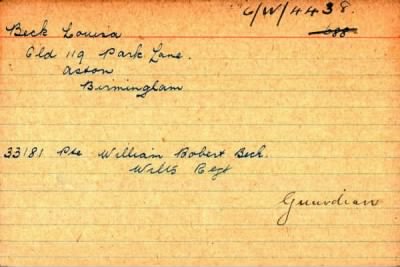 C/W/4438.
688
Beck Louisa
Old 119 Park Lane.
Aston
Birmingham
33181 Pte William Robert Beck.
Wilts Regt
Guardian